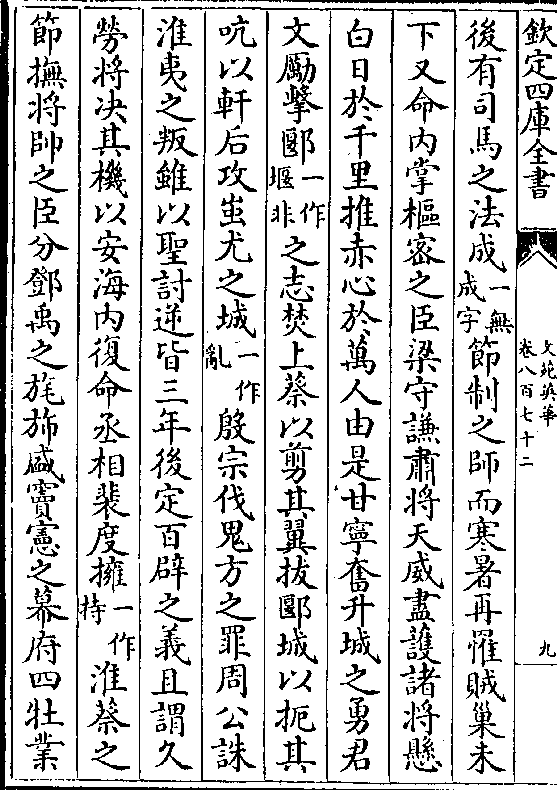 欽定四庫全書
文苑英華
卷八百七十二
九
後有司馬之法成一無成字節制之師而寒暑再罹賊巢未
下又命内掌樞宻之臣梁守謙肅將天威盡護諸將懸
白日於千里推赤心於萬人由是甘寧奮升城之勇君
文勵擊郾一作堰非之志焚上蔡以剪其翼拔郾城以扼其
吭以軒后攻蚩尤之城一作亂殷宗伐鬼方之罪周公誅
淮夷之叛雖以聖討逆皆三年後定百辟之義且謂久
勞將决其機以安海内復命丞相裴度擁一作持淮蔡之
節撫將帥之臣分鄧禹之旄斾盛竇憲之幕府四牡業